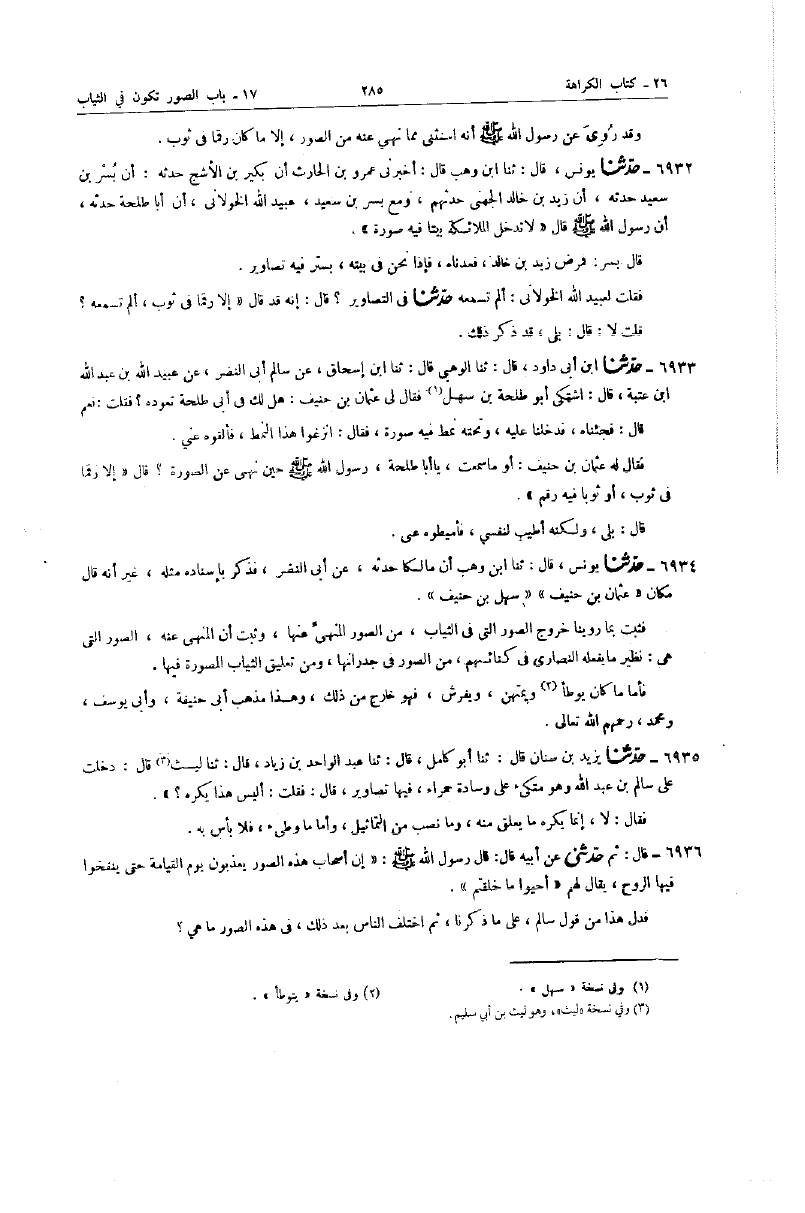 ٢٦ - كتاب الكراهة ٢٨٥ ١٧ - باب الصور تكون في الثياب
وقد رُوِىَ عن رسول الله ﷺ أنه استثنى مما نهى عنه من الصور ، إلا ما كان رقما فى ثوب .
٦٩٣٢ - حدّثنا يونس ، قال : ثنا ابن وهب قال : أخبرنى عمرو بن الحارث أن بكير بن الأشج حدثه : أن بُسْر بن
سعيد حدثه ، أن زيد بن خالد الجهنى حدثهم ، ومع بسر بن سعيد ، عبيد الله الخولانى ، أن أبا طلحة حدثه ،
أن رسول الله ﷺ قال « لا تدخل الملائكة بيتا فيه صورة » .
قال بسر : فمرض زيد بن خالد ، فعدناه ، فإذا نحن فى بيته ، بستر فيه تصاوير .
فقلت لعبيد الله الخولانى : ألم تسمعه حدّثنا فى التصاوير ؟ قال : إنه قد قال « إلا رقما فى ثوب ، ألم تسمعه ؟
قلت لا : قال : بلى ، قد ذكر ذلك .
٦٩٣٣ - حدّثنا ابن أبى داود ، قال : ثنا الوهبي قال : ثنا ابن إسحاق ، عن سالم أبى النضر ، عن عبيد الله بن عبد الله
ابن عتبة ، قال : اشتكى أبو طلحة بن سهل(١) فقال لى عثمان بن حنيف : هل لك فى أبى طلحة تعوده ؟ فقلت : نعم
قال : فجئناه ، فدخلنا عليه ، وتحته نمط فيه صورة ، فقال : انزعوا هذا النمط ، فألقوه عني .
فقال له عثمان بن حنيف : أو ما سمعت ، يا أبا طلحة ، رسول الله ﷺ حين نهى عن الصورة ؟ قال « إلا رقما
فى ثوب ، أو ثوبا فيه رقم » .
قال : بلى ، ولكنه أطيب لنفسي ، فأميطوه عنى .
٦٩٣٤ - حدّثنا يونس ، قال : ثنا ابن وهب أن مالكا حدثه ، عن أبى النضر ، فذكر بإسناده مثله ، غير أنه قال
مكان « عثمان بن حنيف » « سهل بن حنيف » .
فثبت بما روينا خروج الصور التى فى الثياب ، من الصور المنهىّ عنها ، وثبت أن المنهى عنه ، الصور التى
هى : نظير ما يفعله النصارى فى كنائسهم ، من الصور فى جدرانها ، ومن تعليق الثياب المصورة فيها .
فأما ما كان يوطأ (٢) ويمتهن ، ويفرش ، فهو خارج من ذلك ، وهذا مذهب أبى حنيفة ، وأبى يوسف ،
ومحمد ، رحمهم الله تعالى .
٦٩٣٥ - حدّثنا يزيد بن سنان قال : ثنا أبو كامل ، قال : ثنا عبد الواحد بن زياد ، قال : ثنا ليث(٣) قال : دخلت
على سالم بن عبد الله وهو متكىء على وسادة حمراء ، فيها تصاوير ، قال : فقلت : أليس هذا يكره ؟ » .
فقال : لا ، إنما يكره ما يعلق منه ، وما نصب من التماثيل ، وأما ما وطىء ، فلا بأس به .
٦٩٣٦ - قال : ثم حدّثنى عن أبيه قال : قال رسول الله ﷺ : « إن أصحاب هذه الصور يعذبون يوم القيامة حتى ينفخوا
فيها الروح ، يقال لهم « أحيوا ما خلقتم » .
فدل هذا من قول سالم ، على ما ذكرنا ، ثم اختلف الناس بعد ذلك ، فى هذه الصور ما هي ؟
(١) وفى نسخة « سهل » . (٢) وفى نسخة « يتوطأ » .
(٣) وفي نسخة «ليث»، وهو ليث بن أبي سليم.